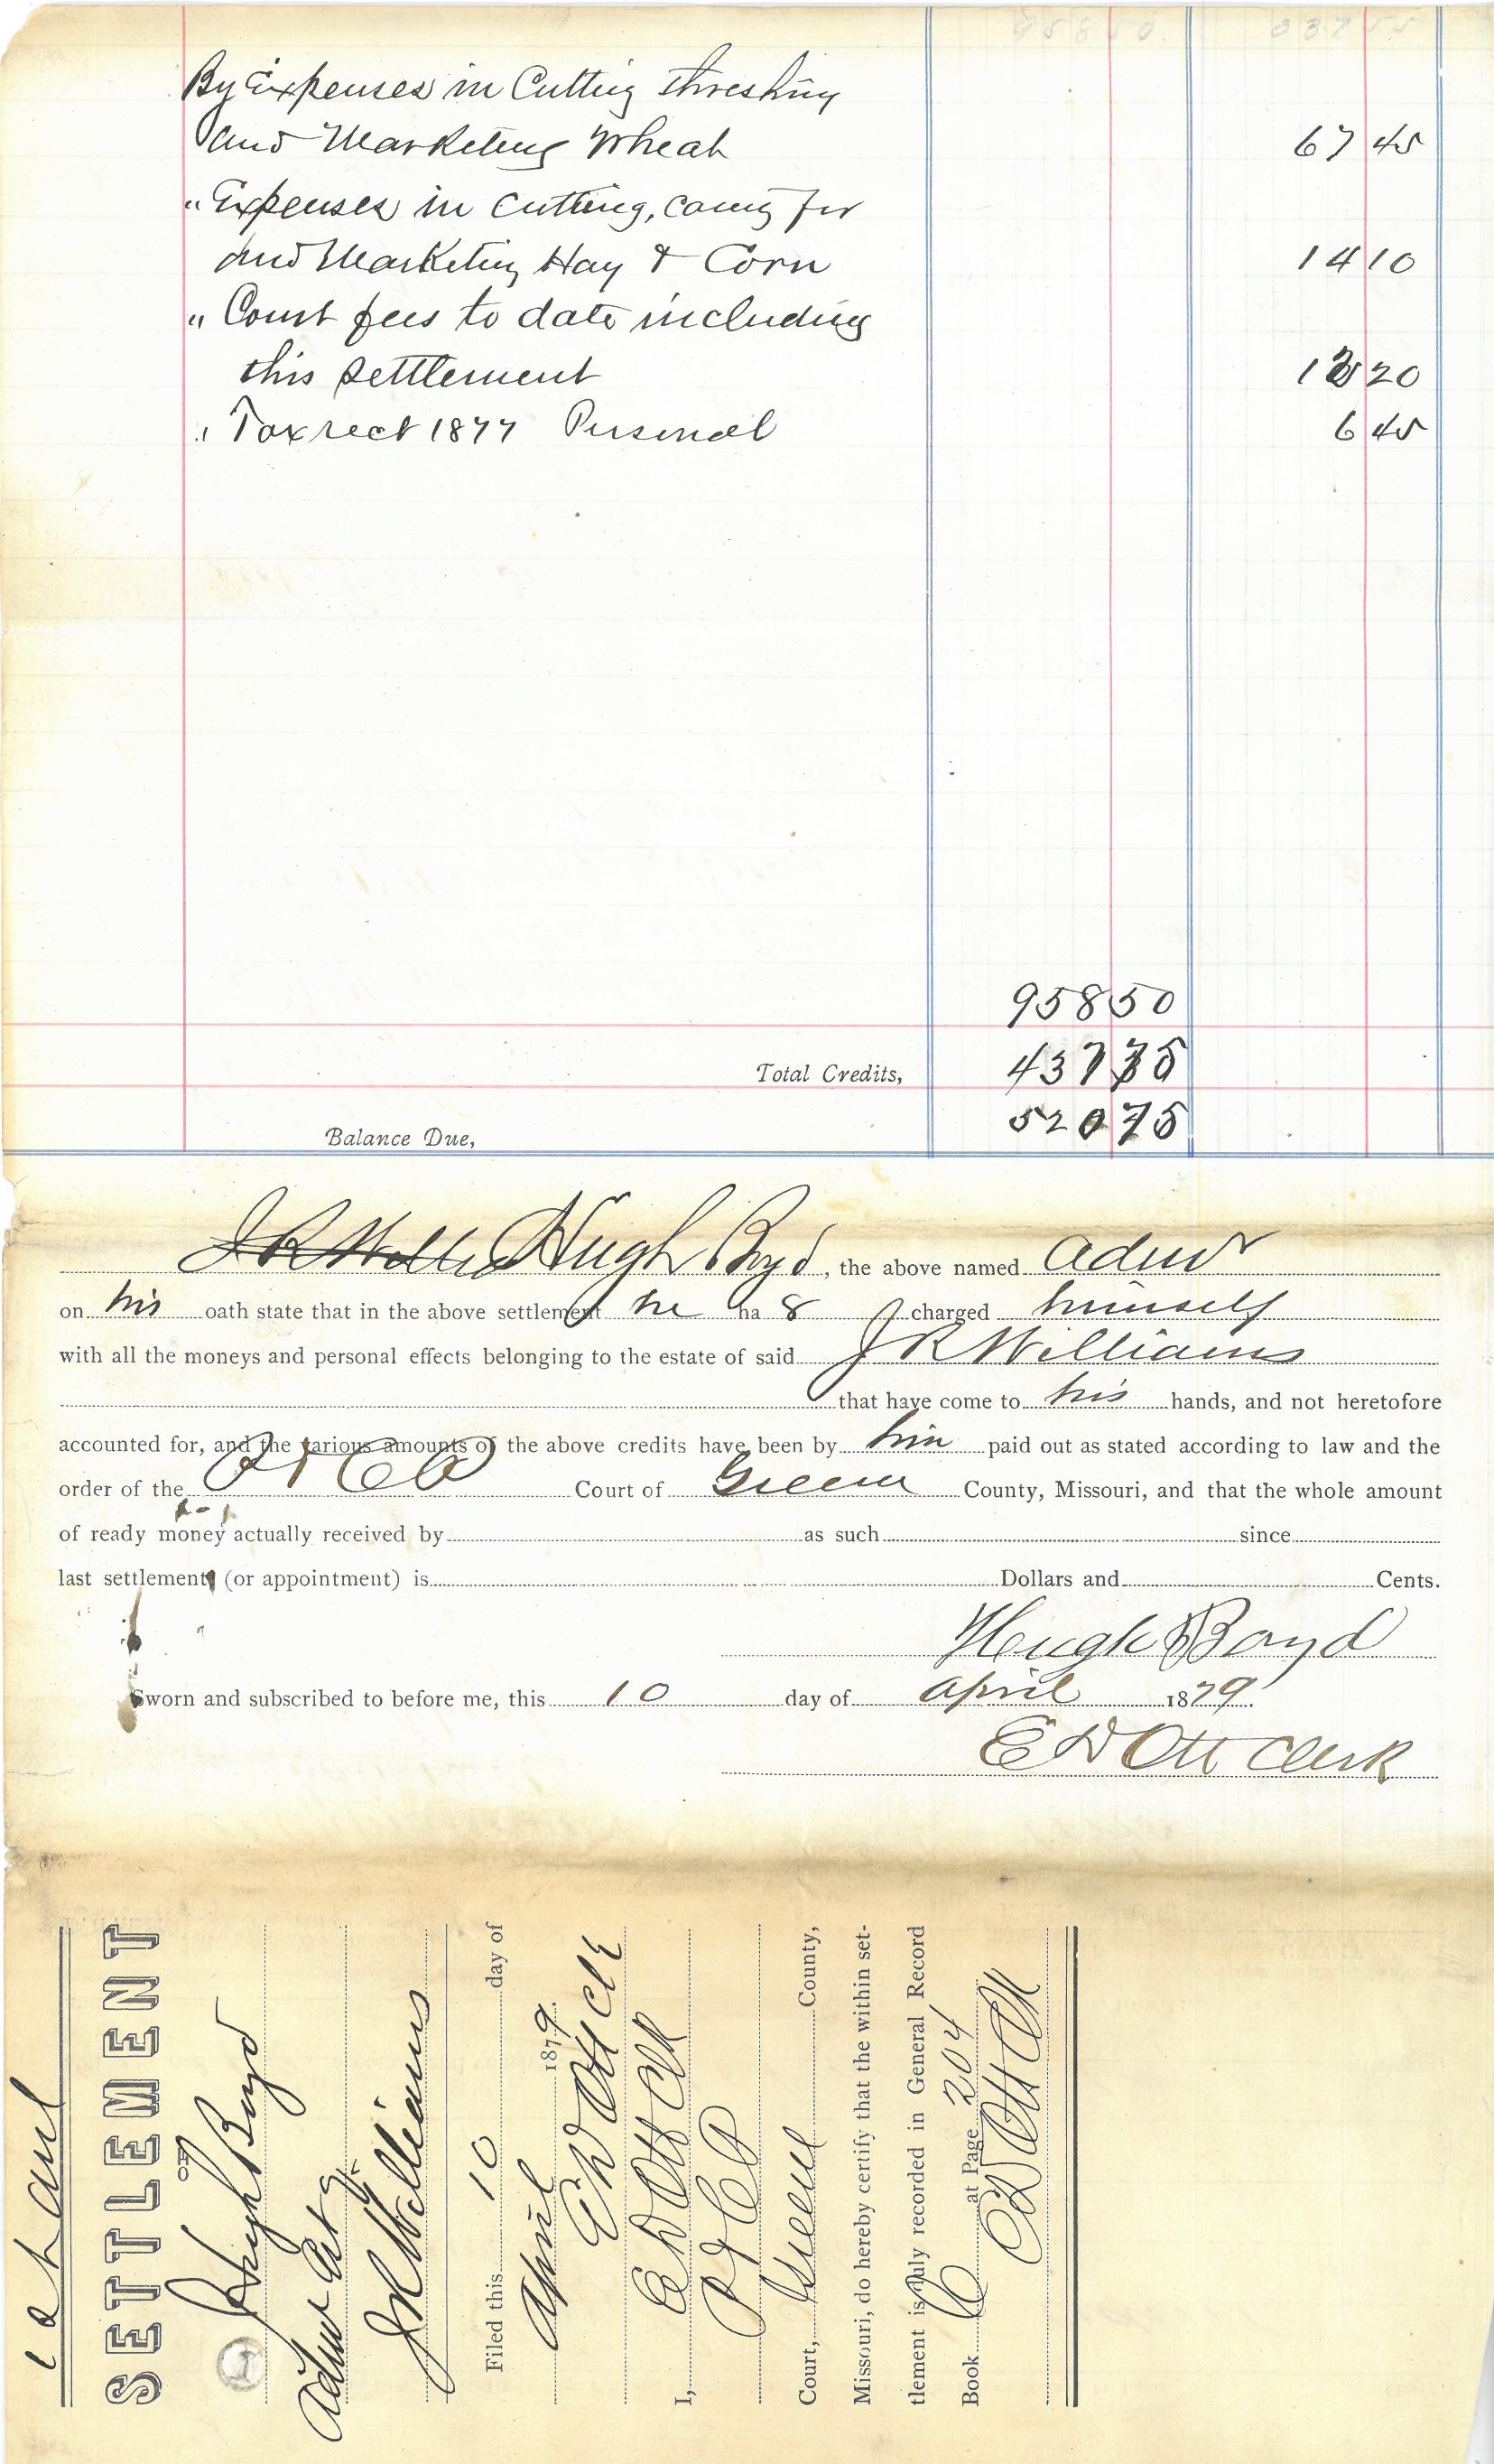 958 50 337 55
By Expenses in Cutting threshing
and Marketing Wheat 67 45
" Expenses in Cutting, caring for
and Marketing Hay & Corn 14 10
" Court fees to date including
this settlement 20
" Tax rect 1877 Personal 6 45
958 50
Total Credits, 437 75
Balance Due, 520 75
Hugh Boyd, the above named Admr
on his oath state that in the above settlement he ha s charged himself
with all the moneys and personal effects belonging to the estate of said J R Williams
that have come to his hands, and not heretofore
accounted for, and the various amounts of the above credits have been by him paid out as stated according to law and the
order of the Court of Greene County, Missouri, and that the whole amount
of ready money actually received by as such since
last settlement (or appointment) is Dollars and Cents.
Hugh Boyd
Sworn and subscribed to before me, this 10 day of April 1879.
E D Ott Clerk
1st Anl
SETTLEMENT
OF
Hugh Boyd
Admr Est of
J R Williams
Filed this 10 day of
April 1879.
E D Ott Clk
I, E D Ott Clk
P & C C
Court, Greene County,
Missouri, do hereby certify that the within set-
tlement is duly recorded in General Record
Book C at Page 204
E D Ott Clk